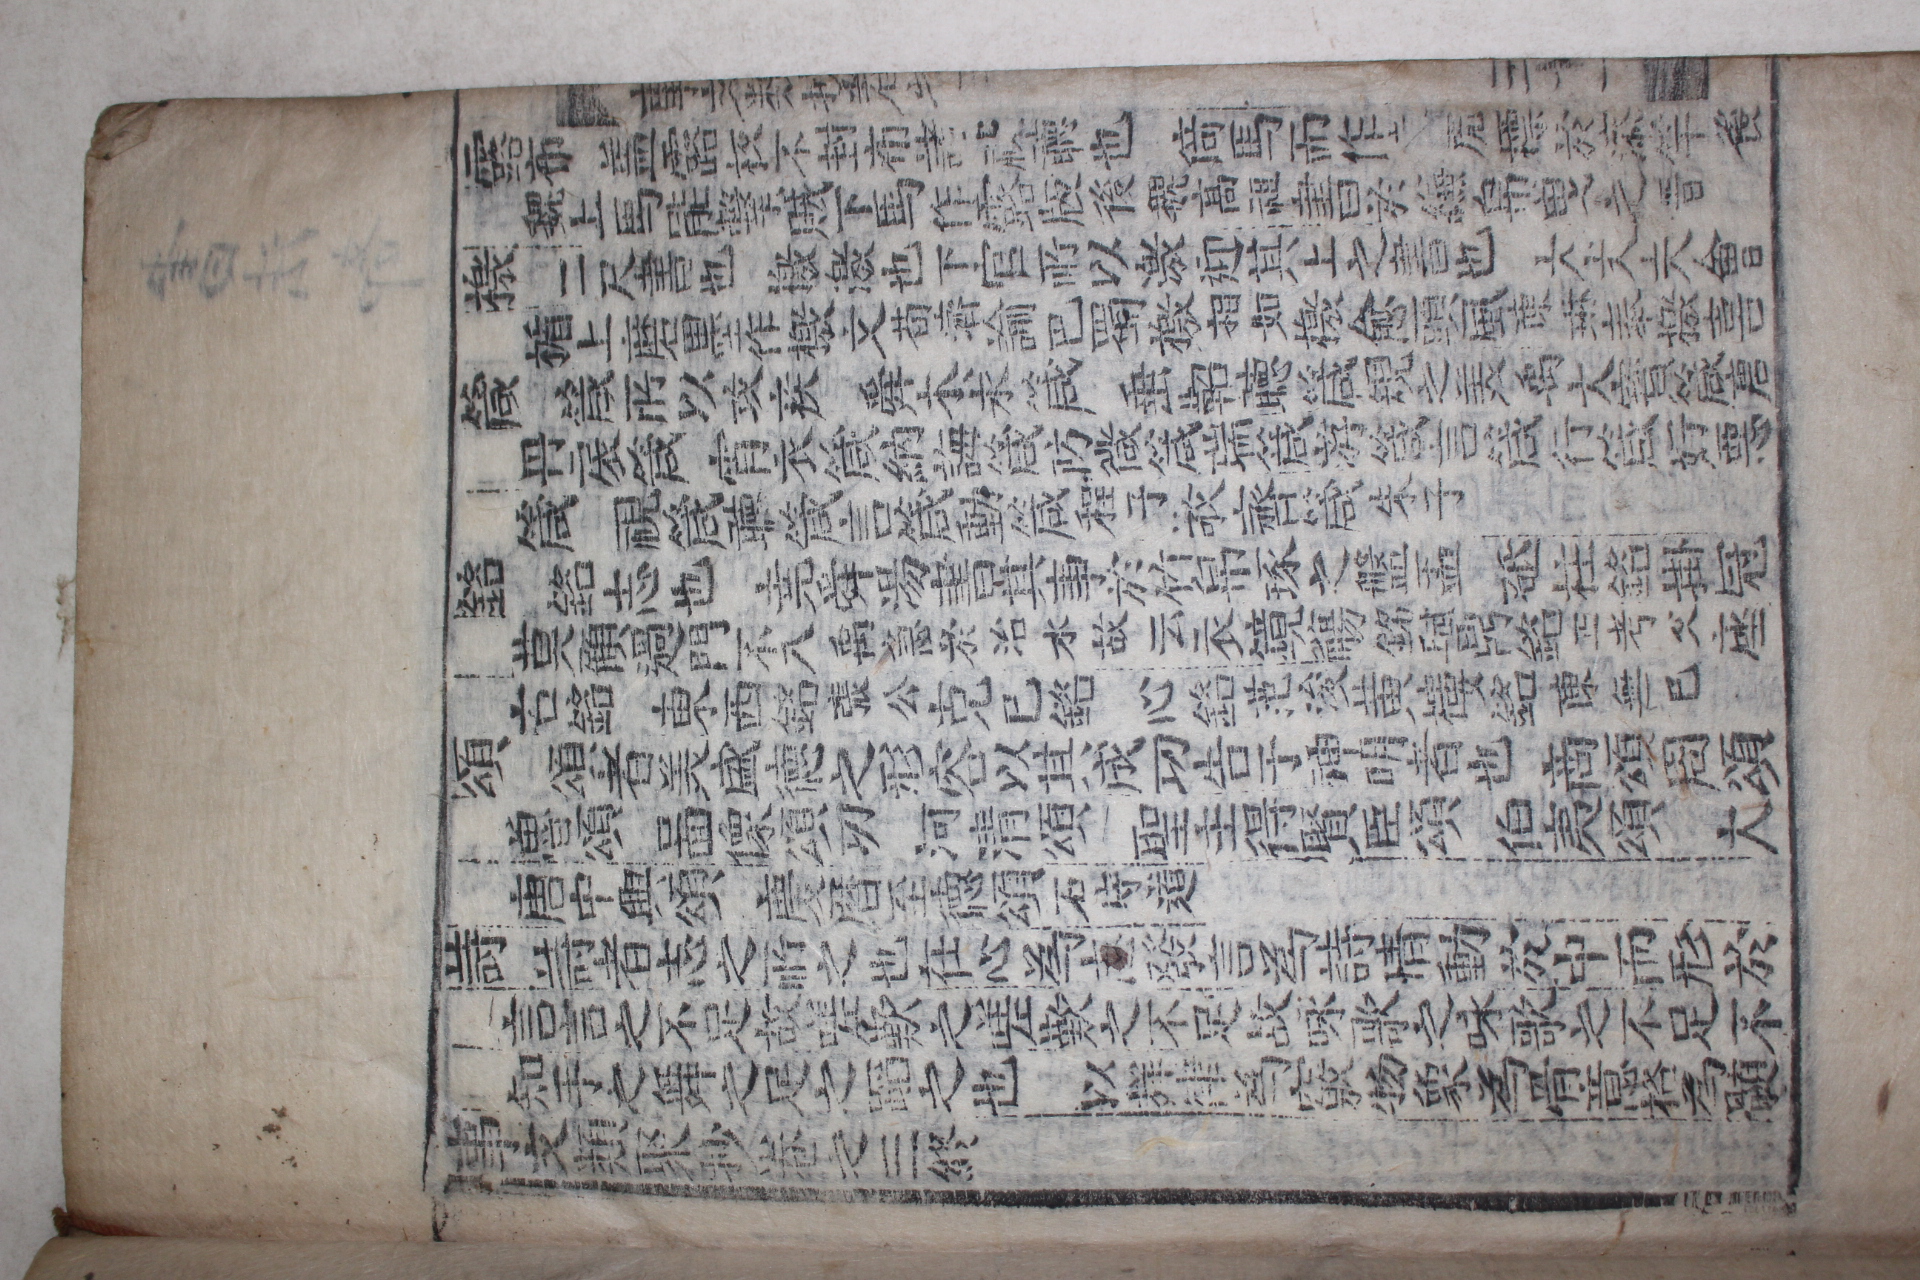 露布 盖露校不封布諸視聽也 倚馬而作 馬檄於 後
魏上馬能擊賊下馬作露版後魏高祖書於縑帛
檄 二尺書也 檄激也下官所以激迎其上之書也
楯上磨墨作檄文苗濟論巴蜀檄相如檄愈頭風陳琳奉檄喜
箴 箴所以攻疾 舜木 箴 垂韜聽箴規之義禹大寶箴唐
丹扆箴 宵衣箴納誨箴防微箴瑞箴游箴言箴行箴好惡
箴 視箴聽箴言箴動箴程子敬齊箴朱子
銘 銘志也 堯舜湯書其事於竹帛琢之盤盂 砥柱銘掛冠
莫顧過門不入禹急於治水故云衣鏡觴銘 銘正考父座
右銘 東西銘張公克己銘 心銘范浚黃樓銘陳無己
頌 頌者美盛德之形容以其成功告于神明者也 商頌周頌
魯頌 啚像頌功 河清頌 聖主得賢臣頌 伯夷頌 大
唐中興頌 慶曆至德頌石守道
詩 詩者志之所之也在心爲志發言爲詩情動於中而形於
言言之不足故嗟歎之嗟歎之不足故咏歌之咏歌之不足不
知手之舞之足之蹈之也 以 律爲竅物象爲骨意格爲髓
事文類聚抄卷之三終